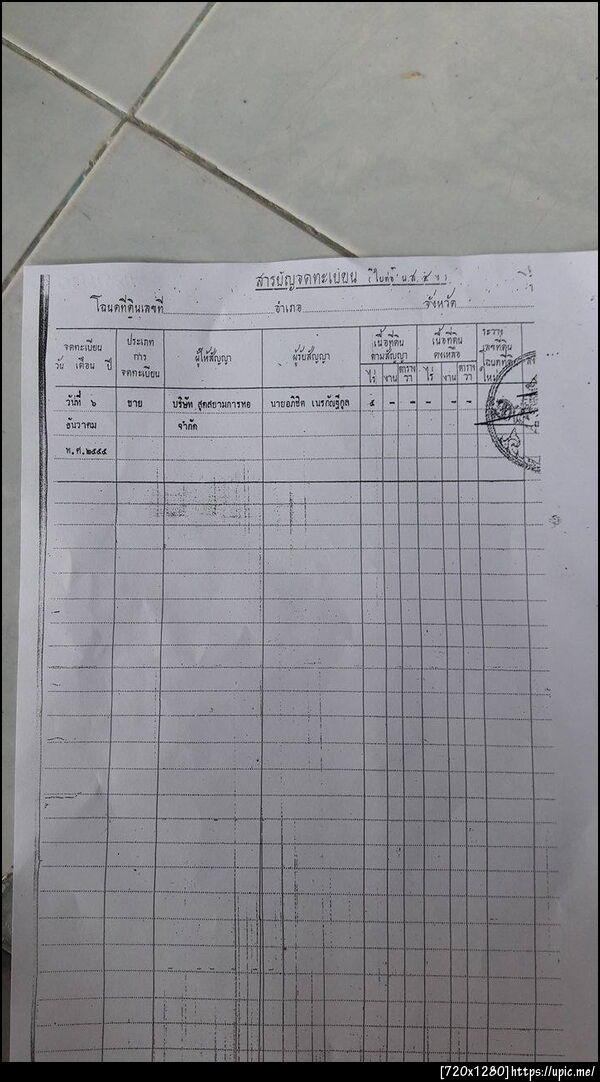 สารบัญจดทะเบียน (ใบต่อ น.ส. ๕ ง)
โฉนดที่ดินเลขที่ อำเภอ จังหวัด
จดทะเบียน
วัน เดือน ปี
ประเภท
การ
จดทะเบียน
ผู้ให้สัญญา
ผู้รับสัญญา
เนื้อที่ดิน
ตามสัญญา
ไร่ งาน ตาราง
วา
เนื้อที่ดิน
คงเหลือ
ไร่ งาน ตาราง
วา
ระวาง
เลขที่ดิน
โฉนดที่ดิน
ใหม่
วันที่ ๖ ขาย บริษัท สุดสยามการทอ นายอภิชิต ๕ - - - - -
ธันวาคม จำกัด
พ.ศ.๒๕๕๕
[720x1280]https://upic.me/